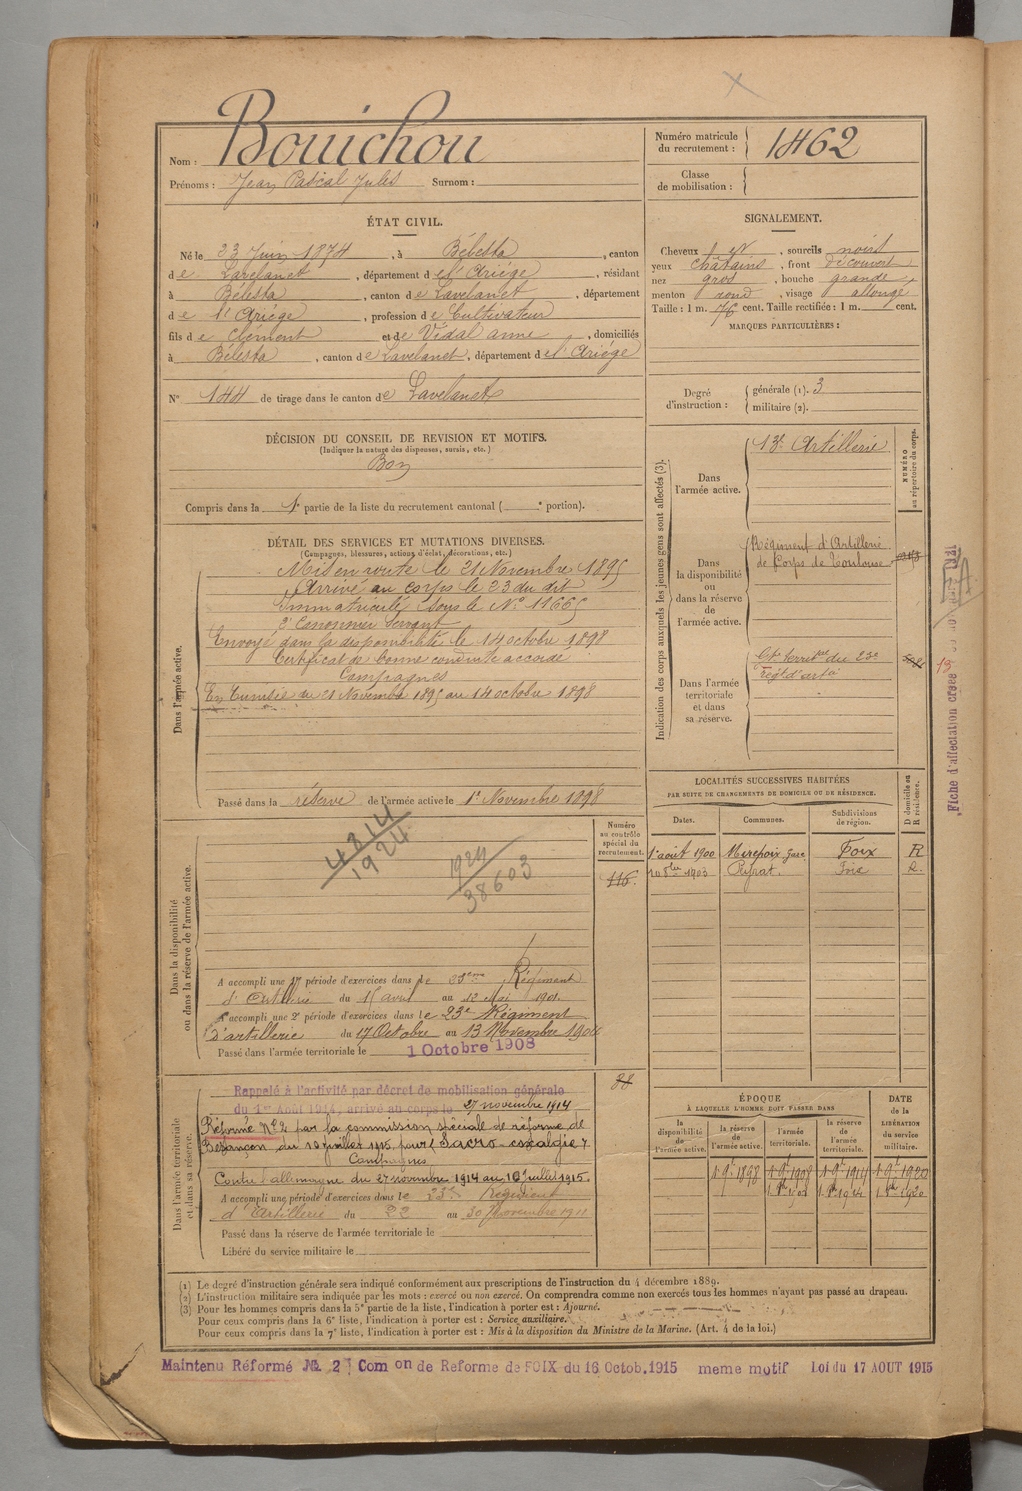 Nom : Bouichou
Prénoms : Jean Pascal Jules Surnom :
Numéro matricule du recrutement : 1462
Classe de mobilisation :
ÉTAT CIVIL.
Né le 23 Juin 1874, à Bélesta, canton
de Lavelanet, département de l'Ariège, résidant
à Bélesta, canton de Lavelanet, département
de l'Ariège, profession de Cultivateur
fils de Clément et de Vidal anne, domiciliés
à Bélesta, canton de Lavelanet, département de l'Ariège
N° 144 de tirage dans le canton de Lavelanet
SIGNALEMENT.
Cheveux et, sourcils noirs
yeux châtains, front découvert
nez gros, bouche grande,
menton rond, visage allongé
Taille : 1 m. 76 cent. Taille rectifiée : 1 m. cent.
MARQUES PARTICULIÈRES :
Degré d'instruction : générale (1). 3
militaire (2).
DÉCISION DU CONSEIL DE REVISION ET MOTIFS.
(Indiquer la nature des dispenses, sursis, etc.)
Bon
Compris dans la 1e partie de la liste du recrutement cantonal ( e portion).
DÉTAIL DES SERVICES ET MUTATIONS DIVERSES.
(Campagnes, blessures, actions d'éclat, décorations, etc.)
Dans l'armée active.
Mis en route le 21 Novembre 1895
Arrivé au corps le 23 du dit
Immatriculé sous le N° 11665
2e Canonnier Servant
Envoyé dans la disponibilité le 14 octobre 1898
Certificat de bonne conduite accordé
Campagnes
En Tunisie du 21 Novembre 1895 au 14 octobre 1898
Passé dans la réserve de l'armée active le 1er Novembre 1898
Indication des corps auxquels les jeunes gens sont affectés (3).
NUMÉRO au répertoire du corps.
Dans l'armée active.
13e Artillerie
Dans la disponibilité ou dans la réserve de l'armée active.
Régiment d'Artillerie
de Corps de Toulouse
Dans l'armée territoriale et dans sa réserve.
Gt territ al du 23e
Régt d'arte
13
Fiche d'affectation créée
Dans la disponibilité ou dans la réserve de l'armée active.
Numéro au contrôle spécial du recrutement.
116
4814
1924
1924
38603
A accompli une 1re période d'exercices dans le 23eme Régiment
d'Artillerie du 15 avril au 12 Mai 1901.
A accompli une 2e période d'exercices dans le 23e Régiment
d'artillerie du 17 Octobre au 13 Novembre 1904
Passé dans l'armée territoriale le 1 Octobre 1908
LOCALITÉS SUCCESSIVES HABITÉES
PAR SUITE DE CHANGEMENTS DE DOMICILE OU DE RÉSIDENCE.
Dates. Communes. Subdivisions de région. D domicile ou R résidence.
1er août 1900 Mirepoix gare Foix R
1903 Peyrat. Foix R.
Dans l'armée territoriale et dans sa réserve.
88
Rappelé à l'activité par décret de mobilisation générale
du 1er Août 1914, arrivé au corps le 27 novembre 1914
Réformé N° 2 par la commission spéciale de réforme de
Besançon du 10 juillet 1915, pour "Sacro-coxalgie"
Campagnes
Contre l'allemagne du 27 novembre 1914 au 10 juillet 1915.
A accompli une période d'exercices dans le 23e Régiment
d'Artillerie du 22 au 30 Novembre 1911
Passé dans la réserve de l'armée territoriale le
Libéré du service militaire le
ÉPOQUE
À LAQUELLE L'HOMME DOIT PASSER DANS
DATE de la LIBÉRATION du service militaire.
la disponibilité de l'armée active. la réserve de l'armée active. l'armée territoriale. la réserve de l'armée territoriale.
1 9e 1898 1 9e 1908 1 9e 1914 1 9e 1920
(1) Le degré d'instruction générale sera indiqué conformément aux prescriptions de l'instruction du 4 décembre 1889.
(2) L'instruction militaire sera indiquée par les mots : exercé ou non exercé. On comprendra comme non exercés tous les hommes n'ayant pas passé au drapeau.
(3) Pour les hommes compris dans la 5e partie de la liste, l'indication à porter est : Ajourné.
Pour ceux compris dans la 6e liste, l'indication à porter est : Service auxiliaire.
Pour ceux compris dans la 7e liste, l'indication à porter est : Mis à la disposition du Ministre de la Marine. (Art. 4 de la loi.)
Maintenu Réformé № 2 Com on de Reforme de FOIX du 16 Octob. 1915 meme motif Loi du 17 AOUT 1915